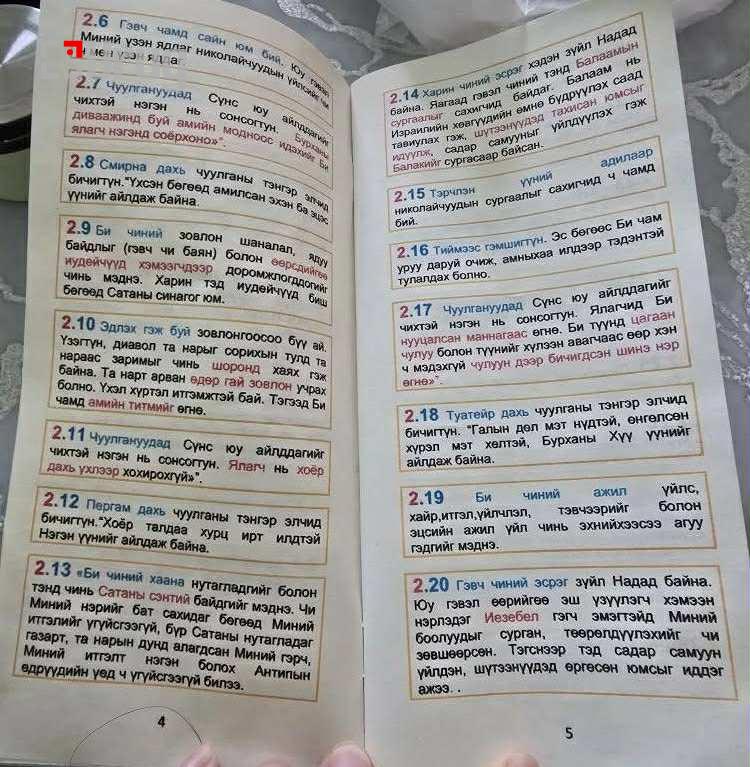 2.6 Гэвч чамд сайн юм бий. Юу гэвэл
Миний үзэн яддаг николайчуудын үйлсийг чи
ч мөн үзэн яддаг.
2.7 Чуулгануудад Сүнс юу айлддагийг
чихтэй нэгэн нь сонсогтун. Бурханы
диваажинд буй амийн модноос идэхийг Би
ялагч нэгэнд соёрхоно»".
2.8 Смирна дахь чуулганы тэнгэр элчид
бичигтүн."Үхсэн бөгөөд амилсан эхэн ба эцэс
үүнийг айлдаж байна.
2.9 Би чиний зовлон шаналал, ядуу
байдлыг (гэвч чи баян) болон өөрсдийгөө
иудейчүүд хэмээгчдээр доромжлогддогийг
чинь мэднэ. Харин тэд иудейчүүд биш
бөгөөд Сатаны синагог юм.
2.10 Эдлэх гэж буй зовлонгоосоо бүү ай.
Үзэгтүн, диавол та нарыг сорихын тулд та
нараас заримыг чинь шоронд хаях гэж
байна. Та нарт арван өдөр гай зовлон учрах
болно. Үхэл хүртэл итгэмжтэй бай. Тэгээд Би
чамд амийн титмийг өгнө.
2.11 Чуулгануудад Сүнс юу айлддагийг
чихтэй нэгэн нь сонсогтун. Ялагч нь хоёр
дахь үхлээр хохирохгүй»".
2.12 Пергам дахь чуулганы тэнгэр элчид
бичигтүн."Хоёр талдаа хурц ирт илдтэй
Нэгэн үүнийг айлдаж байна.
2.13 «Би чиний хаана нутагладгийг болон
тэнд чинь Сатаны сэнтий байдгийг мэднэ. Чи
Миний нэрийг бат сахидаг бөгөөд Миний
итгэлийг үгүйсгээгүй, бүр Сатаны нутагладаг
газарт, та нарын дунд алагдсан Миний гэрч,
Миний итгэлт нэгэн болох Антипын
өдрүүдийн үед ч үгүйсгээгүй билээ.
4
2.14 Харин чиний эсрэг хэдэн зүйл Надад
байна. Яагаад гэвэл чиний тэнд Балаамын
сургаалыг сахигчид байдаг. Балаам нь
Израилийн хөвгүүдийн өмнө бүдрүүлэх саад
тавиулах гэж, шүтээнүүдэд тахисан юмсыг
идүүлж, садар самууныг үйлдүүлэх гэж
Балакийг сургасаар байсан.
2.15 Тэрчлэн үүний адилаар
николайчуудын сургаалыг сахигчид ч чамд
бий.
2.16 Тиймээс гэмшигтүн. Эс бөгөөс Би чам
уруу даруй очиж, амныхаа илдээр тэдэнтэй
тулалдах болно.
2.17 Чуулгануудад Сүнс юу айлддагийг
чихтэй нэгэн нь сонсогтун. Ялагчид Би
нууцалсан маннагаас өгнө. Би түүнд цагаан
чулуу болон түүнийг хүлээн авагчаас өөр хэн
ч мэдэхгүй чулуун дээр бичигдсэн шинэ нэр
өгнө»".
2.18 Туатейр дахь чуулганы тэнгэр элчид
бичигтүн. "Галын дөл мэт нүдтэй, өнгөлсөн
хүрэл мэт хөлтэй, Бурханы Хүү үүнийг
айлдаж байна.
2.19 Би чиний ажил үйлс,
хайр,итгэл,үйлчлэл, тэвчээрийг болон
эцсийн ажил үйл чинь эхнийхээсээ агуу
гэдгийг мэднэ.
2.20 Гэвч чиний эсрэг зүйл Надад байна.
Юу гэвэл өөрийгөө эш үзүүлэгч хэмээн
нэрлэдэг Иезебел гэгч эмэгтэйд Миний
боолуудыг сурган, төөрөлдүүлэхийг чи
зөвшөөрсөн. Тэгснээр тэд садар самуун
үйлдэн, шүтээнүүдэд өргөсөн юмсыг иддэг
ажээ. .
5